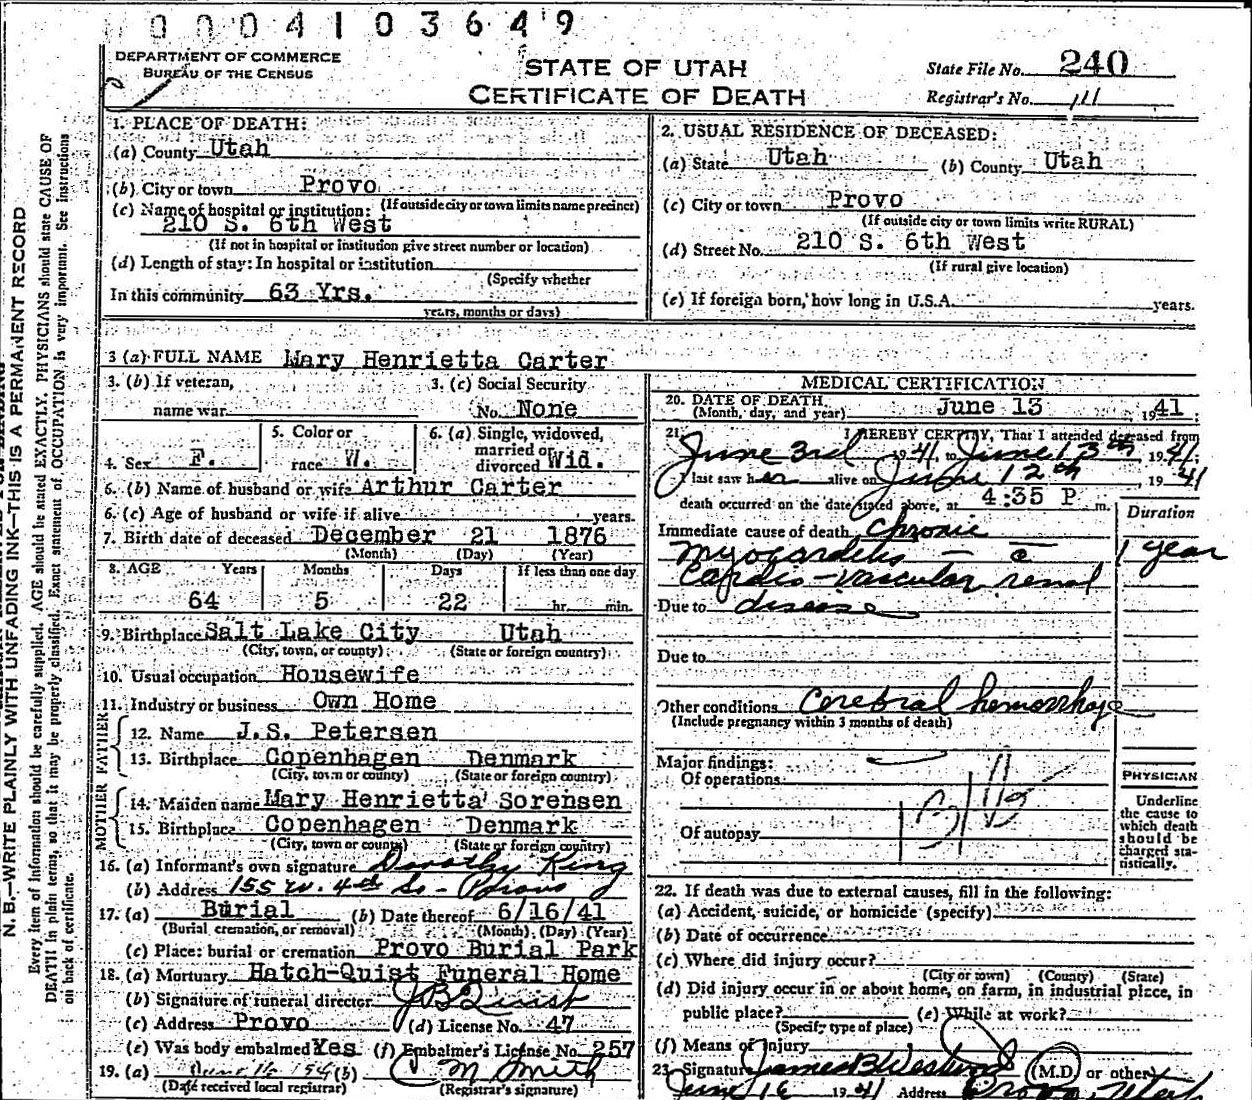 0004103649
DEPARTMENT OF COMMERCE
BUREAU OF THE CENSUS
STATE OF UTAH
CERTIFICATE OF DEATH
State File No. 240
Registrar's No. 111
N. B.—WRITE PLAINLY WITH UNFADING INK—THIS IS A PERMANENT RECORD
Every item of information should be carefully supplied. AGE should be stated EXACTLY. PHYSICIANS should state CAUSE OF
DEATH in plain terms, so that it may be properly classified. Exact statement of OCCUPATION is very important. See instructions
on back of certificate.
1. PLACE OF DEATH:
(a) County Utah
(b) City or town Provo
(If outside city or town limits name precinct)
(c) Name of hospital or institution:
210 S. 6th West
(If not in hospital or institution give street number or location)
(d) Length of stay: In hospital or institution
(Specify whether
In this community 63 Yrs.
years, months or days)
2. USUAL RESIDENCE OF DECEASED:
(a) State Utah (b) County Utah
(c) City or town Provo
(If outside city or town limits write RURAL)
(d) Street No. 210 S. 6th West
(If rural give location)
(e) If foreign born, how long in U.S.A. years.
3 (a) FULL NAME Mary Henrietta Carter
3. (b) If veteran, 3. (c) Social Security
name war No. None
4. Sex F. 5. Color or race W. 6. (a) Single, widowed, married or divorced Wid.
6. (b) Name of husband or wife Arthur Carter
6. (c) Age of husband or wife if alive years.
7. Birth date of deceased December 21 1876
(Month) (Day) (Year)
8. AGE Years Months Days If less than one day
64 5 22 hr. min.
9. Birthplace Salt Lake City Utah
(City, town, or county) (State or foreign country)
10. Usual occupation Housewife
11. Industry or business Own Home
FATHER
12. Name J.S. Petersen
13. Birthplace Copenhagen Denmark
(City, town or county) (State or foreign country)
MOTHER
14. Maiden name Mary Henrietta Sorensen
15. Birthplace Copenhagen Denmark
(City, town or county) (State or foreign country)
16. (a) Informant's own signature Dorothy King
(b) Address 155 W. 4th So - Provo
17. (a) Burial (b) Date thereof 6/16/41
(Burial, cremation, or removal) (Month) (Day) (Year)
(c) Place: burial or cremation Provo Burial Park
18. (a) Mortuary Hatch-Quist Funeral Home
(b) Signature of funeral director J B Quist
(c) Address Provo (d) License No. 47
(e) Was body embalmed Yes (f) Embalmer's License No. 257
19. (a) June 16 194 (b) C M Smith
(Date received local registrar) (Registrar's signature)
MEDICAL CERTIFICATION
20. DATE OF DEATH
(Month, day, and year) June 13 1941
21. I HEREBY CERTIFY, That I attended deceased from
June 3rd 1941, to June 13th 1941;
I last saw her alive on June 12th 1941
death occurred on the date stated above, at 4:35 P m.
Duration
Immediate cause of death Chronic
myocarditis — c 1 year
Cardio-vascular renal
Due to disease
Due to
Other conditions Cerebral hemorrhage
(Include pregnancy within 3 months of death)
Major findings:
Of operations
Of autopsy
PHYSICIAN
Underline
the cause to
which death
should be
charged sta-
tistically.
22. If death was due to external causes, fill in the following:
(a) Accident, suicide, or homicide (specify)
(b) Date of occurrence
(c) Where did injury occur?
(City or town) (County) (State)
(d) Did injury occur in or about home, on farm, in industrial place, in
public place? (e) While at work?
(Specify type of place)
(f) Means of injury
23. Signature James B Westwood (M.D. or other)
June 16 1941 Address Provo, Utah